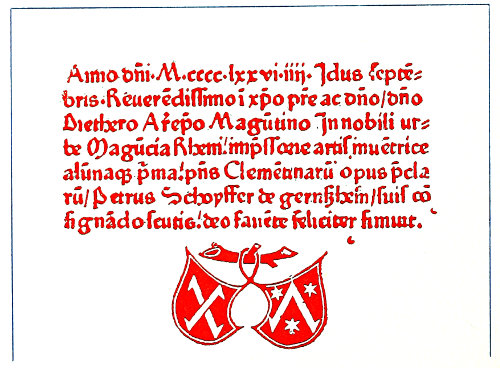 Anno dñi. M. cccc. lxxvi. iiij. Idus septē-
bris. Reuerēdissimo ī xp̄o pr̄e ac dño/dño
Diethero Ar̄epo Magūtino In nobili ur-
be Magūcia Rheni. imp̄ssorie artis inuētrice
alūnaq; p̄ma. p̄ns Clemētinarū opus p̄cla
rū/Petrus Schoyffer de gernsz̄hem/suis cō
signādo scutis. deo fauēte feliciter finiuit.